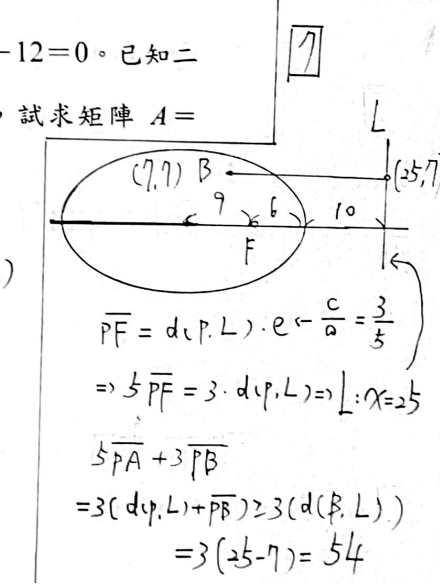 -12=0。已知二
，試求矩陣 A=
7
L
(7,7) B
(25,7
9 6 10
F
PF = d(P.L)·e ← c/a = 3/5
=> 5PF = 3·d(P,L) => L:x=25
5PA + 3PB
=3(d(P,L)+PB)≥3(d(B,L))
=3(25-7)=54
)